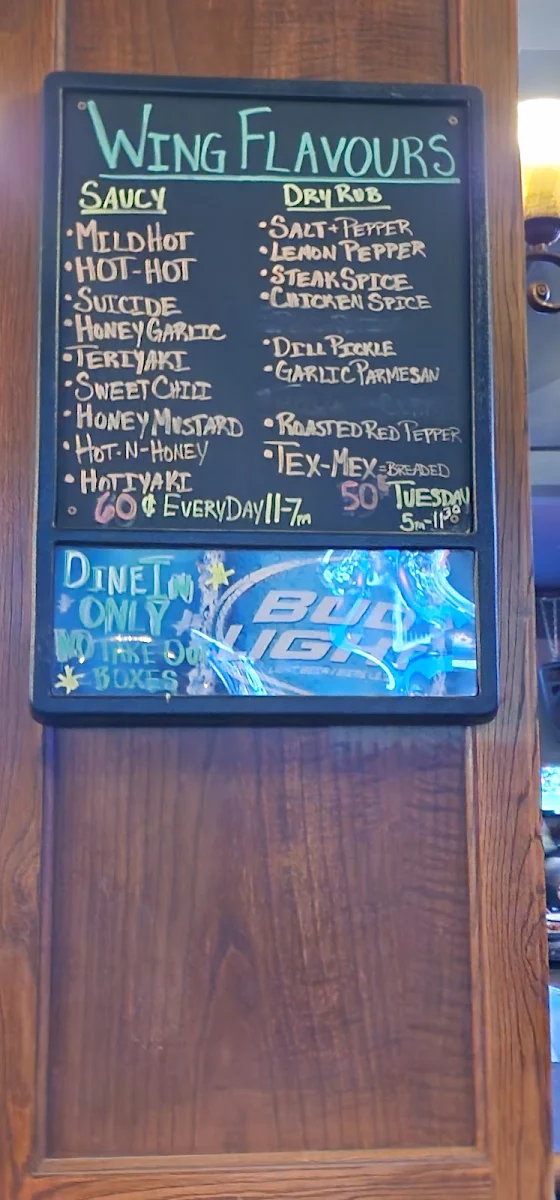 WING FLAVOURS
SAUCY
• MILD HOT
• HOT-HOT
• SUICIDE
• HONEY GARLIC
• TERIYAKI
• SWEET CHILI
• HONEY MUSTARD
• HOT-N-HONEY
• HOTIYAKI
DRY RUB
• SALT + PEPPER
• LEMON PEPPER
• STEAK SPICE
• CHICKEN SPICE
• DILL PICKLE
• GARLIC PARMESAN
• ROASTED RED PEPPER
• TEX-MEX = BREADED
60¢ EVERYDAY 11-7pm
50¢ TUESDAY
5pm-11:30
DINE IN
ONLY
NO TAKE OUT
BOXES
BUD
LIGHT